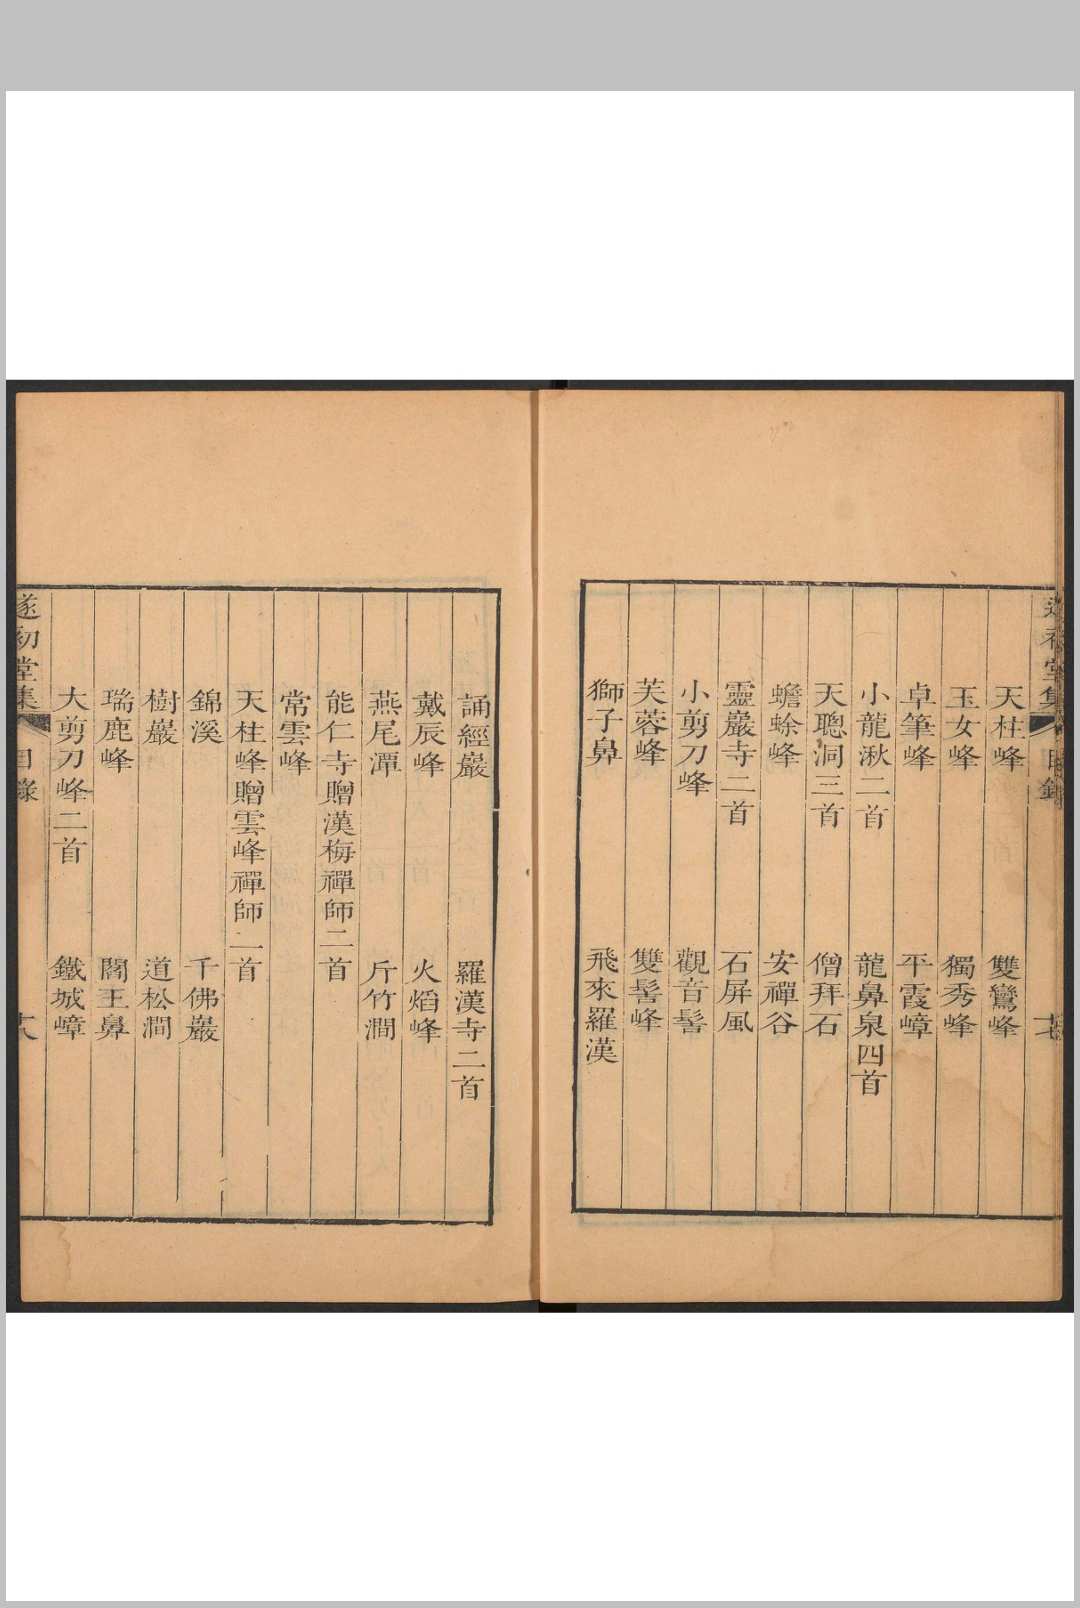 遂初堂集 目錄 十七
天柱峰 雙鸞峰
玉女峰 獨秀峰
卓筆峰 平霞嶂
小龍湫二首 龍鼻泉四首
天聰洞三首 僧拜石
蟾蜍峰 安禪谷
靈巖寺二首 石屏風
小剪刀峰 觀音髻
芙蓉峰 雙髻峰
獅子鼻 飛來羅漢
誦經巖 羅漢寺二首
戴辰峰 火焰峰
燕尾潭 斤竹澗
能仁寺贈漢梅禪師二首
常雲峰
天柱峰贈雲峰禪師二首
錦溪 千佛巖
樹巖 道松澗
瑞鹿峰 閻王鼻
大剪刀峰二首 鐵城嶂
遂初堂集 目錄 十八